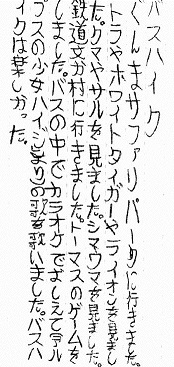 バスハイク
ぐんまサファリパークに行きました。
トラやホワイトタイガーやライオンを見まし
た。クマやサルを見ました。シマウマを見ました。
鉄道文か村に行きました。トーマスのゲームを
しました。バスの中でカラオケでおしえてアル
プスの少女ハイジの歌を歌いました。バスハ
イクは楽しかった。